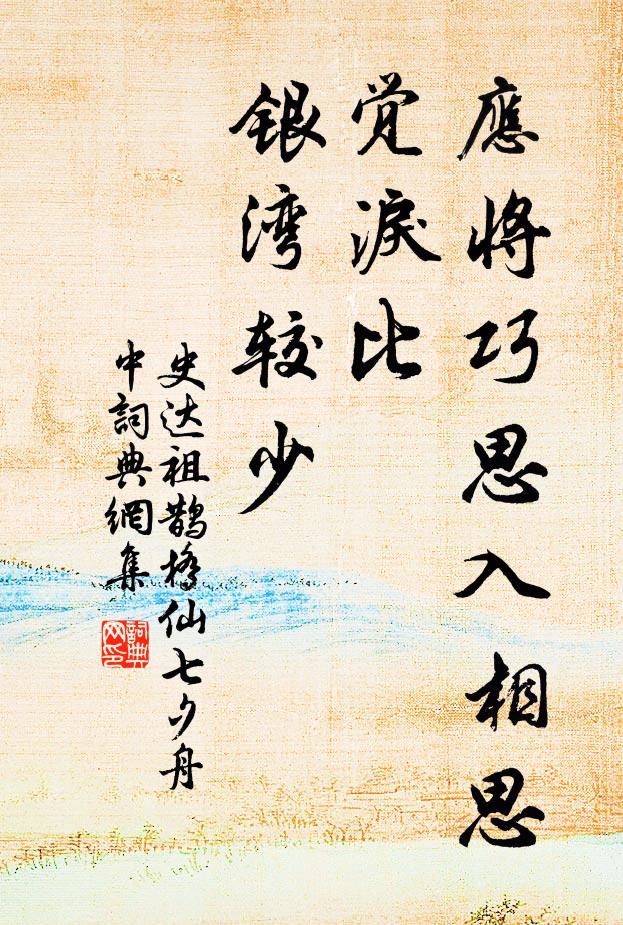 應将巧思入相思
觉淚比
银湾较少
史达祖鹊橋仙七夕舟
中詞典網集
詞典网印